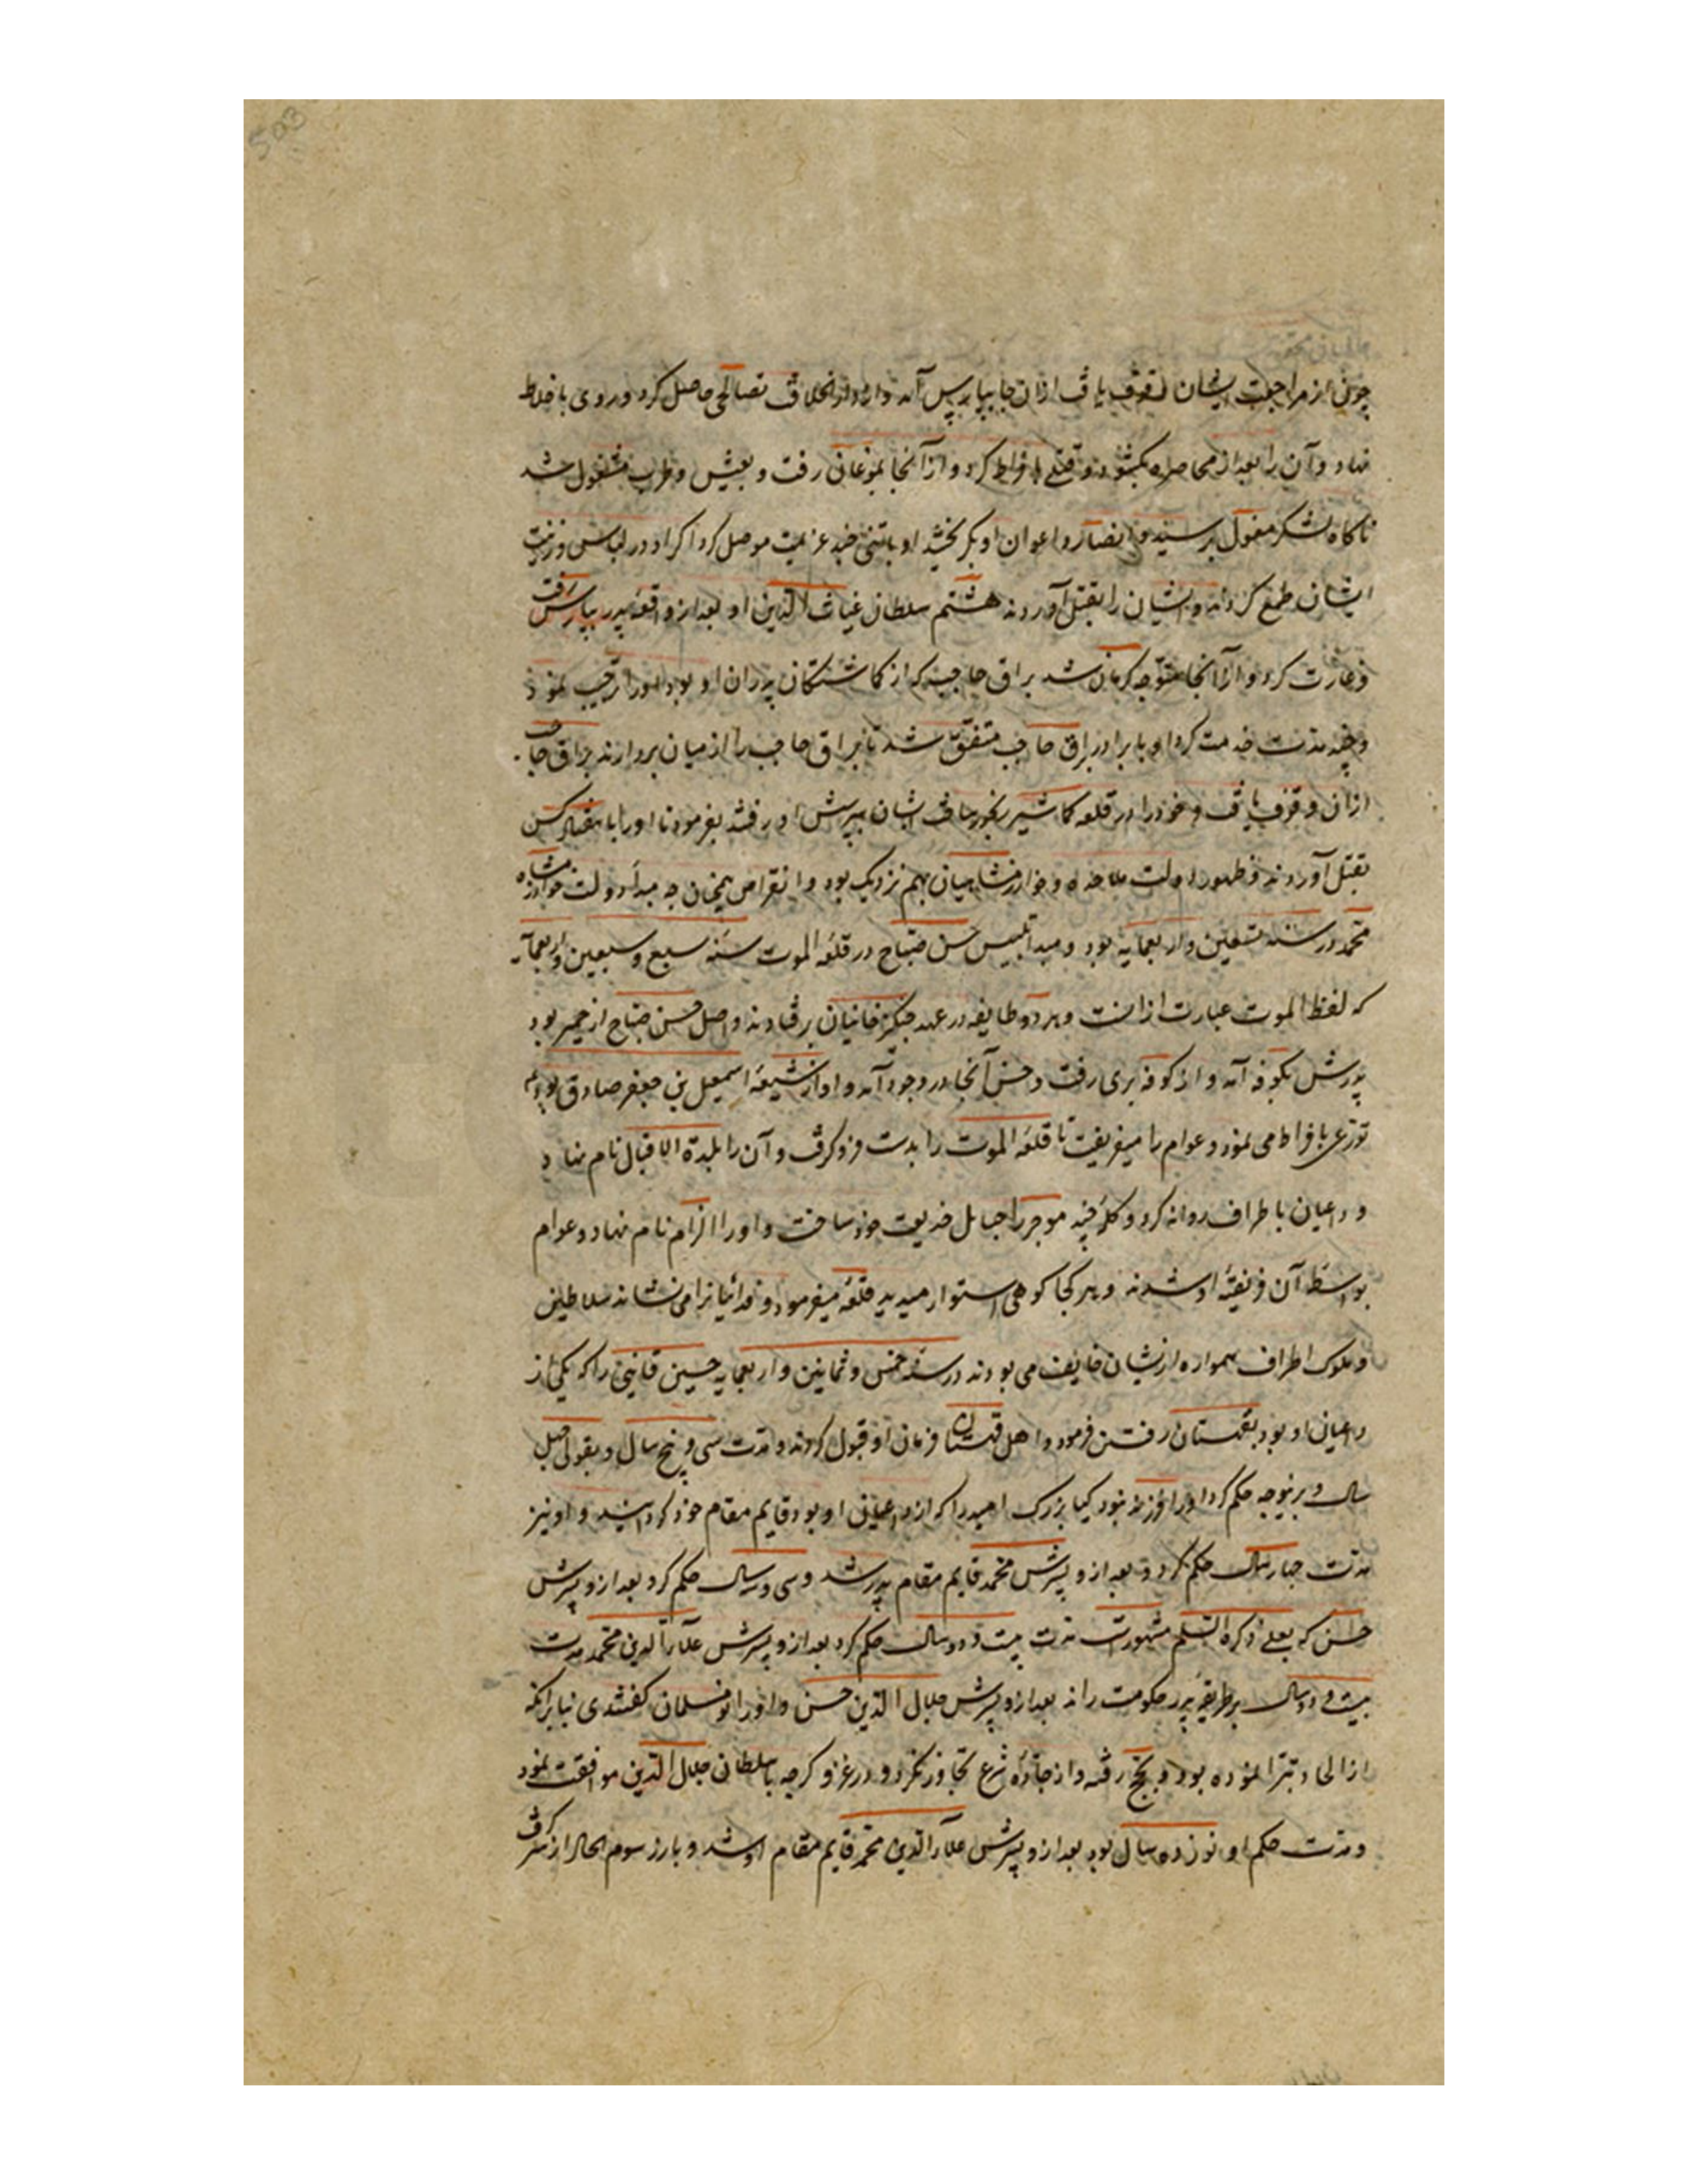 چون از مراجعت ایشان وقوف یافت ازان جا بپارس آمد و از دارالخلافت تصالحی حاصل کرد و روی باخلاط
نهاد و آن را بعد از محاصره بکشود و قتلی بافراط کرد و از آنجا بموغان رفت و بعیش و طرب مشغول شد
ناکاه لشکر مغول برسیدند و انصار و اعوان او بکریختند او با تنی چند عزیمت موصل کرد اکراد در لباس و زینت
ایشان طمع کردند و ایشان را بقتل آوردند هشتم سلطان غیاث الدین او بعد از واقعهٔ پدر بپارس رفت
و غارت کرد و از آنجا متوجه کرمان شد براق حاجب که از کماشتکان پدران او بود او را ترحیب نمود
و چند مدت خدمت کرد او با برادر براق حاجب متفق شد تا براق حاجب را از میان بردارند براق حاجب
ازان وقوف یافت و خود را در قلعه کاشیر رنجور ساخت ایشان بپرسش او رفتند بفرمود تا او را با هفتاد کس
بقتل آوردند و ظهور دولت ملاحده و خوارزمشاهیان بهم نزدیک بود و انقراض همچنان چه مبدأ دولت خوارزمشاه
محمد در سنه تسعین و اربعمایه بود و مبدأ تلبیس حسن صباح در قلعه الموت سنه سبع و سبعین و اربعمایه
که لفظ الموت عبارت ازانست و هر دو طایفه در عهد چنکیزخانیان برفتادند و اصل حسن صباح از حمیر بود
پدرش بکوفه آمد و از کوفه بری رفت و حسن آنجا در وجود آمد و او از شیعه اسمعیل بن جعفر صادق بود
تورعی بافراط می نمود و عوام را میفریفت تا قلعه الموت را بدست فرو کرفت و آن را بلدة الاقبال نام نهاد
و داعیان باطراف روانه کرد و کلمهٔ چند موجز را حبایل خدیعت خود ساخت و او را الزام نام نهاد و عوام
بواسطه آن فریفتهٔ او شدند و هر کجا کوهی استوار میدید قلعه میفرمود و فدائیانرا می نشاند سلاطین
و ملوک اطراف همواره ازیشان خایف می بودند در سنه خمس و ثمانین و اربعمایه حسین قائنی را که یکی از
داعیان او بود بقهستان رفتن فرمود و اهل قهستان فرمان او قبول کردند و مدت سی و پنج سال و بقولی چهل
سال و برینوجه حکم کرد او را فرزند نبود کیا بزرک امید را که از داعیان او بود قایم مقام خود کردانید و او نیز
مدت چهار سال حکم کرد و بعد ازو پسرش محمد قایم مقام پدر شد و سی و سه سال حکم کرد بعد ازو پسرش
حسن که بعلی ذکره السلم مشهورست مدت بیست و دو سال حکم کرد بعد ازو پسرش علاء الدین محمد مدت
بیست و دو سال بر طریقهٔ پدر حکومت راند بعد ازو پسرش جلال الدین حسن و او را نو مسلمان کفتندی بنا برانکه
از الحاد تبرا نموده بود و بحج رفته و از جاده شرع تجاوز نکرد و در غزو کرجه با سلطان جلال الدین موافقت نمود
و مدت حکم او نوزده سال بود بعد ازو پسرش علاء الدین محمد قایم مقام او شد و باز رسوم الحاد از سر کرفت